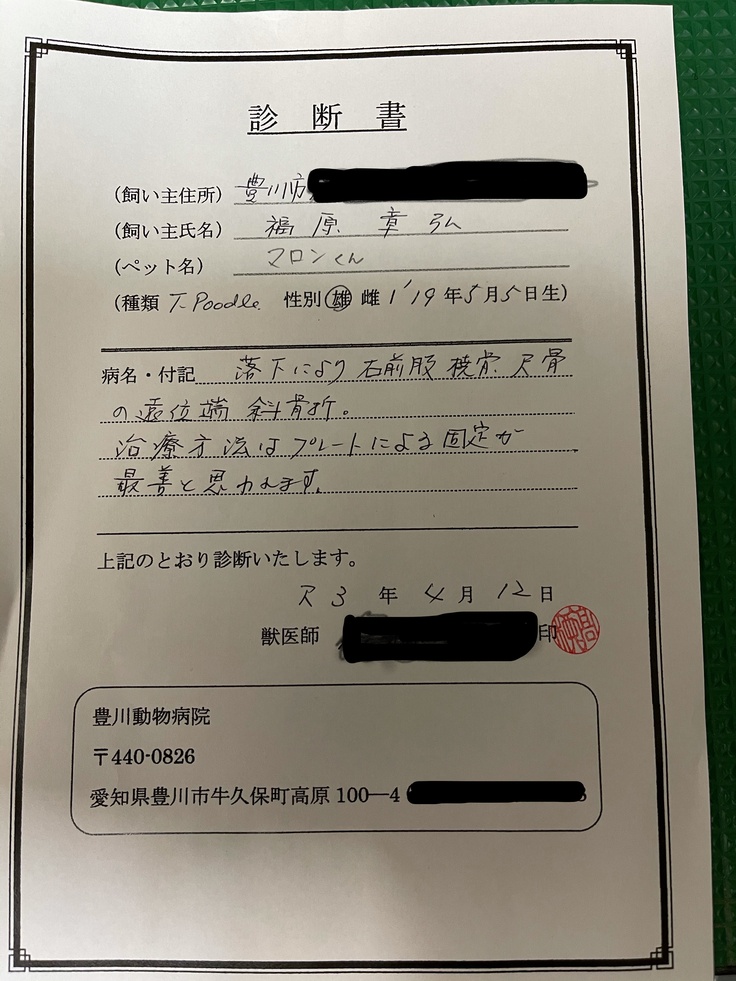 診断書
(飼い主住所) 豊川市
(飼い主氏名) 福原 章弘
(ペット名) マロンくん
(種類 T. Poodle 性別 雄 雌 '19年5月5日生)
病名・付記 落下により右前股 橈骨 尺骨
の遠位端 斜骨折。
治療方法はプレートによる固定が
最善と思われます。
上記のとおり診断いたします。
R3年4月12日
獣医師 印
豊川動物病院
〒440-0826
愛知県豊川市牛久保町高原100—4